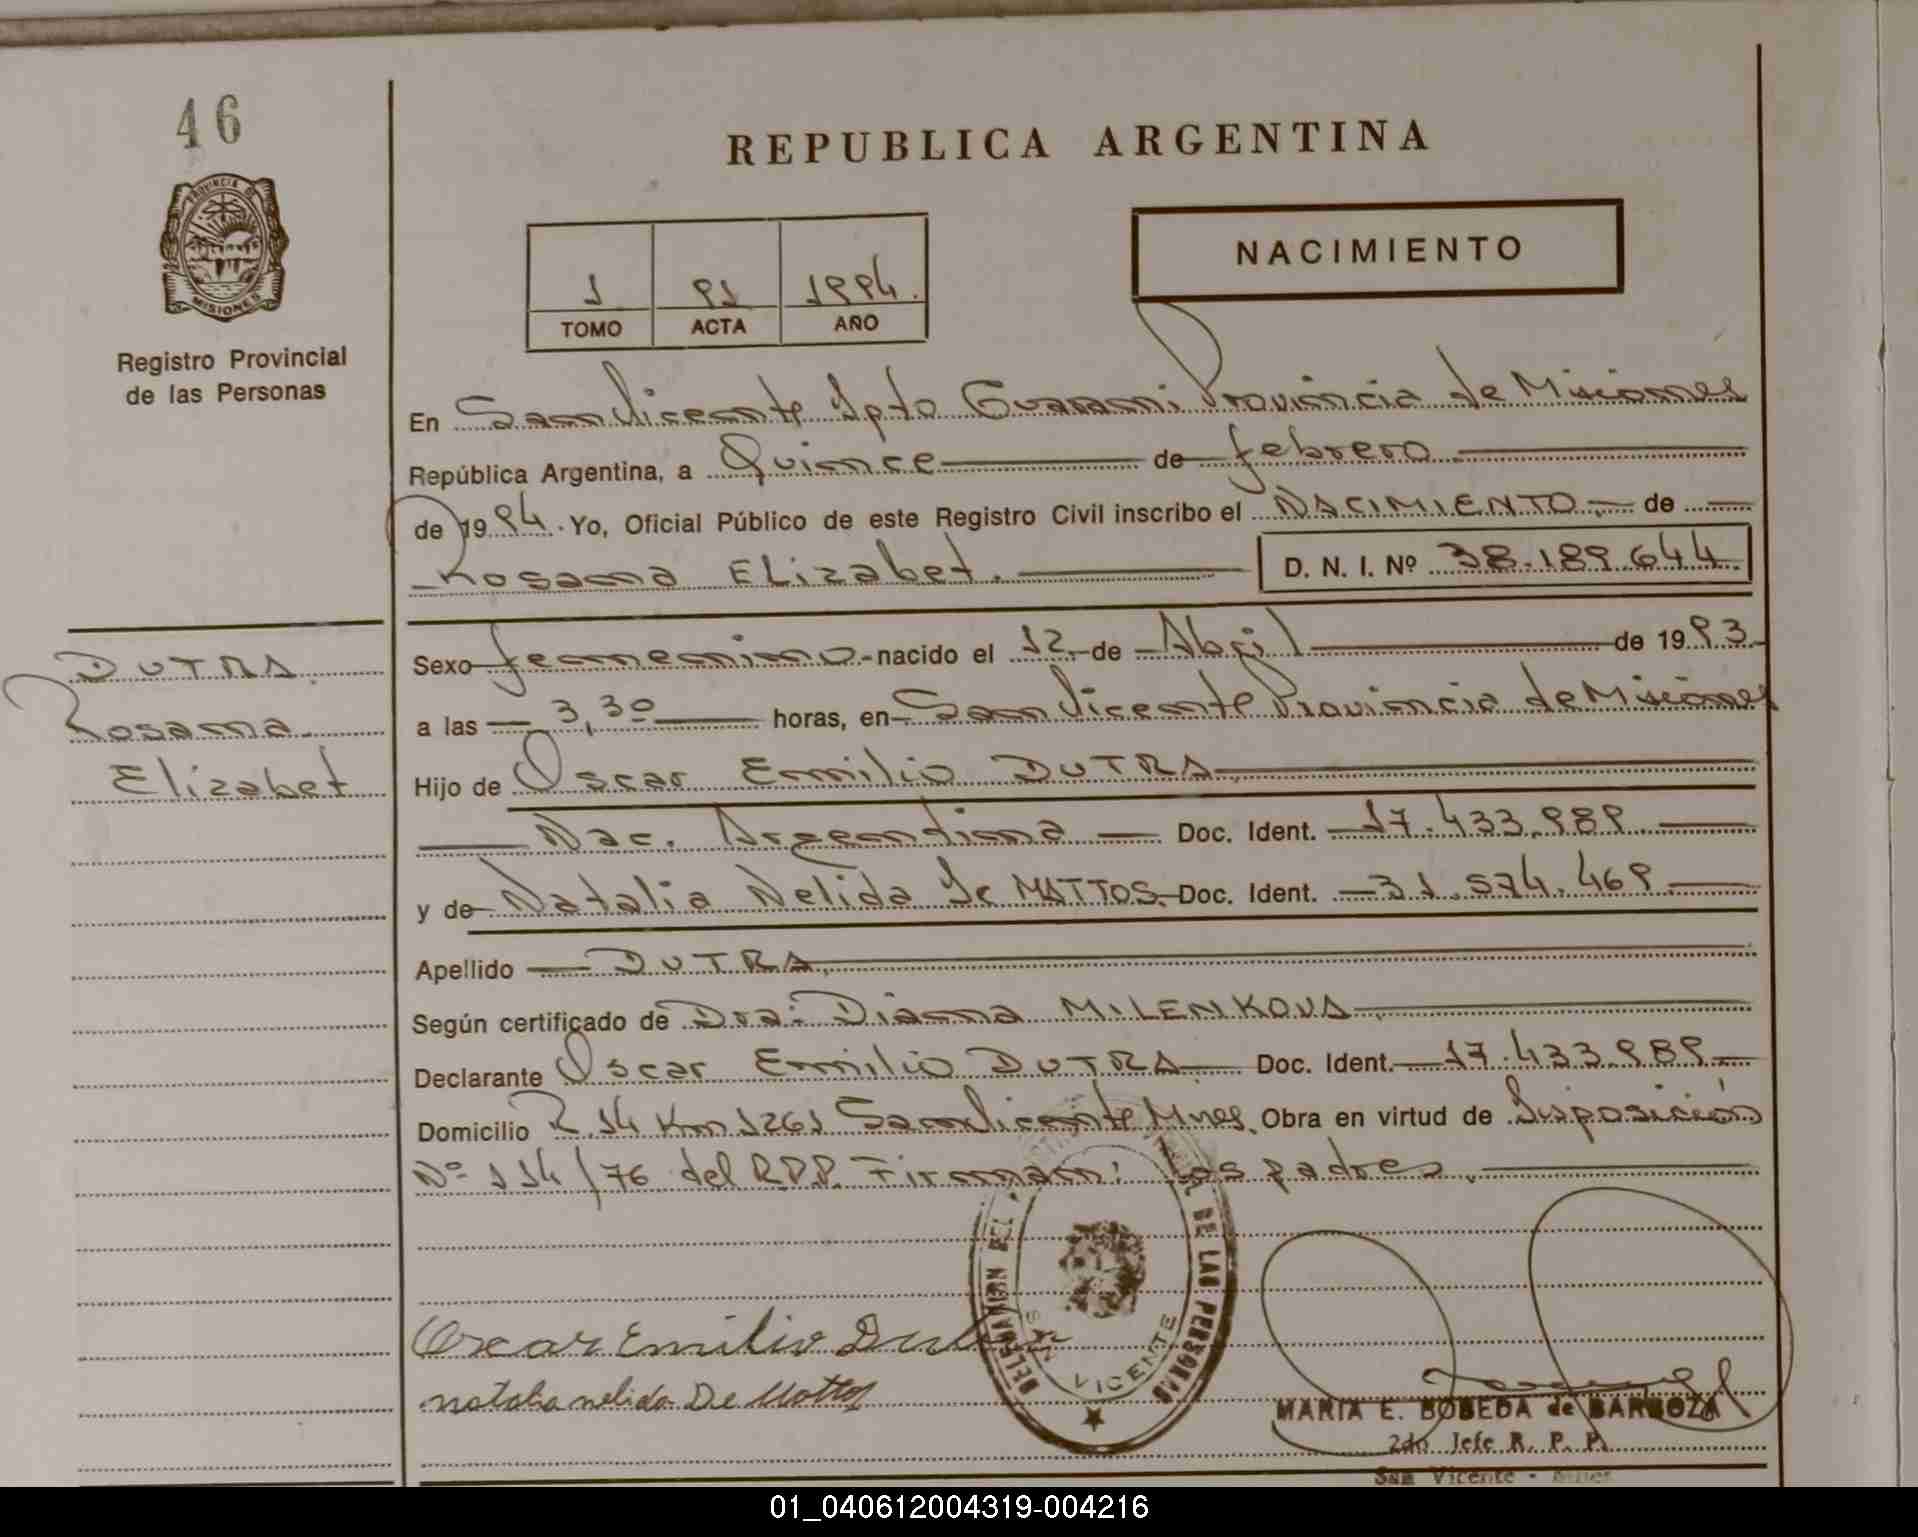 46
PROVINCIA DE
MISIONES
Registro Provincial
de las Personas
REPUBLICA ARGENTINA
NACIMIENTO
1 91 1994.
TOMO ACTA AÑO
En San Vicente Dpto Guarani Provincia de Misiones
República Argentina, a Quince de febrero
de 1994. Yo, Oficial Público de este Registro Civil inscribo el NACIMIENTO de
Rosana ELizabet. D. N. I. Nº 38.189.644
DUTRA
Rosana
Elizabet
Sexo femenino nacido el 12 de Abril de 1993
a las 3,30 horas, en San Vicente Provincia de Misiones
Hijo de Oscar Emilio DUTRA
Nac. Argentina Doc. Ident. 17.433.989
y de Natalia Nelida De MATTOS Doc. Ident. 31.574.469
Apellido DUTRA
Según certificado de Dra: Diana MILENKOVA
Declarante Oscar Emilio DUTRA Doc. Ident. 17.433.989
Domicilio R.14 Km 1261 San Vicente Mnes. Obra en virtud de Disposición
Nº 114/76 del R.P.P. Firman: los padres
DELEGACION DEL DE LAS PERSONAS
SAN VICENTE
Oscar Emilio Dutra
natalia nelida De Mattos
MARIA E. BOBEDA de BARBOZA
2do Jefe R. P. P.
San Vicente - Mnes
01_040612004319-004216